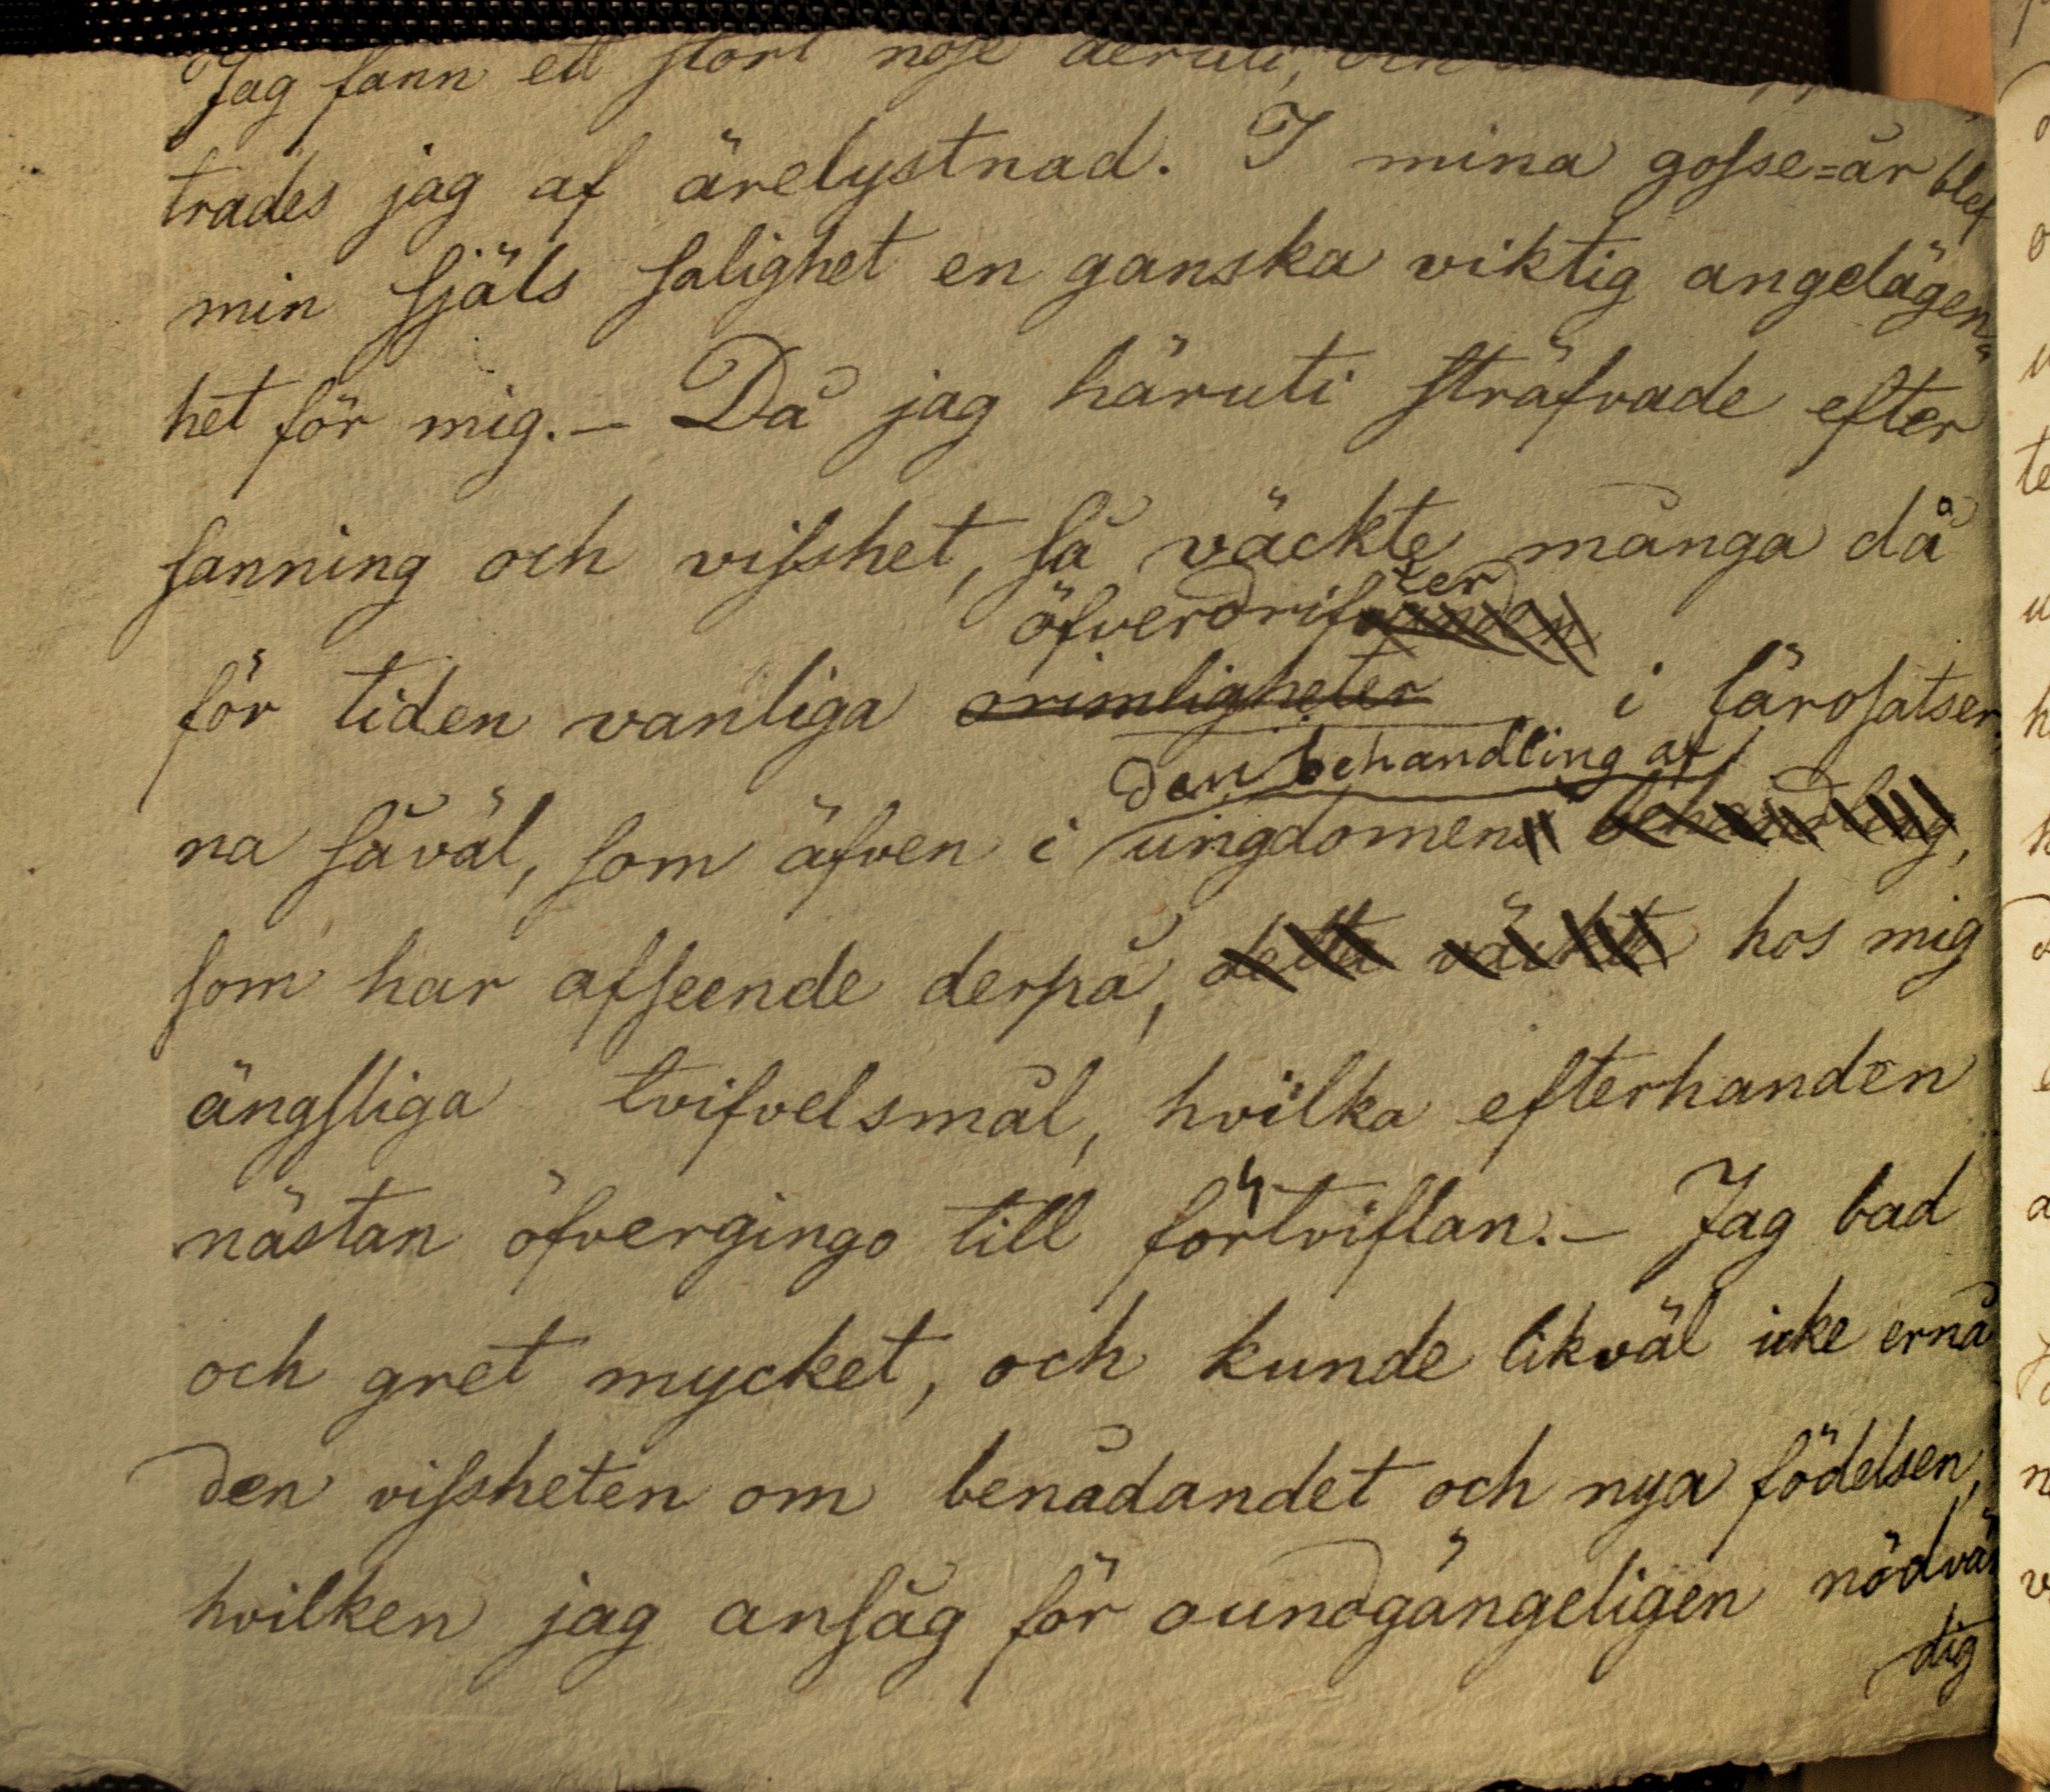 Jag fann ett stort nöje deruti, och
trades jag af ärelystnad. I mina gosse=år blef
min själs salighet en ganska viktig angelägen=
het för mig. — Då jag häruti sträfvade efter
sanning och visshet, så väckte många då
öfverdrifter
för tiden vanliga orimligheter i lärosatser
den behandling af
na såväl, som äfven i ungdomens behandling,
som har afseende derpå, detta väckte hos mig
ängsliga tvifvelsmål, hvilka efterhanden
nästan öfvergingo till förtviflan. — Jag bad
och gret mycket, och kunde likväl icke ernå
den vissheten om benådandet och nya födelsen,
hvilken jag ansåg för oundgängeligen nödvän
dig